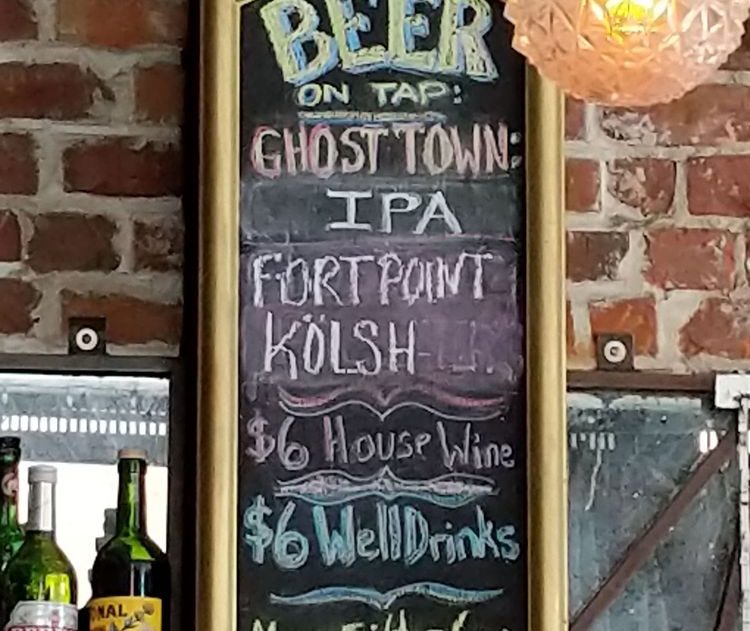 BEER
ON TAP:
GHOST TOWN:
IPA
FORT POINT
KÖLSH
$6 House Wine
$6 Well Drinks
NAL